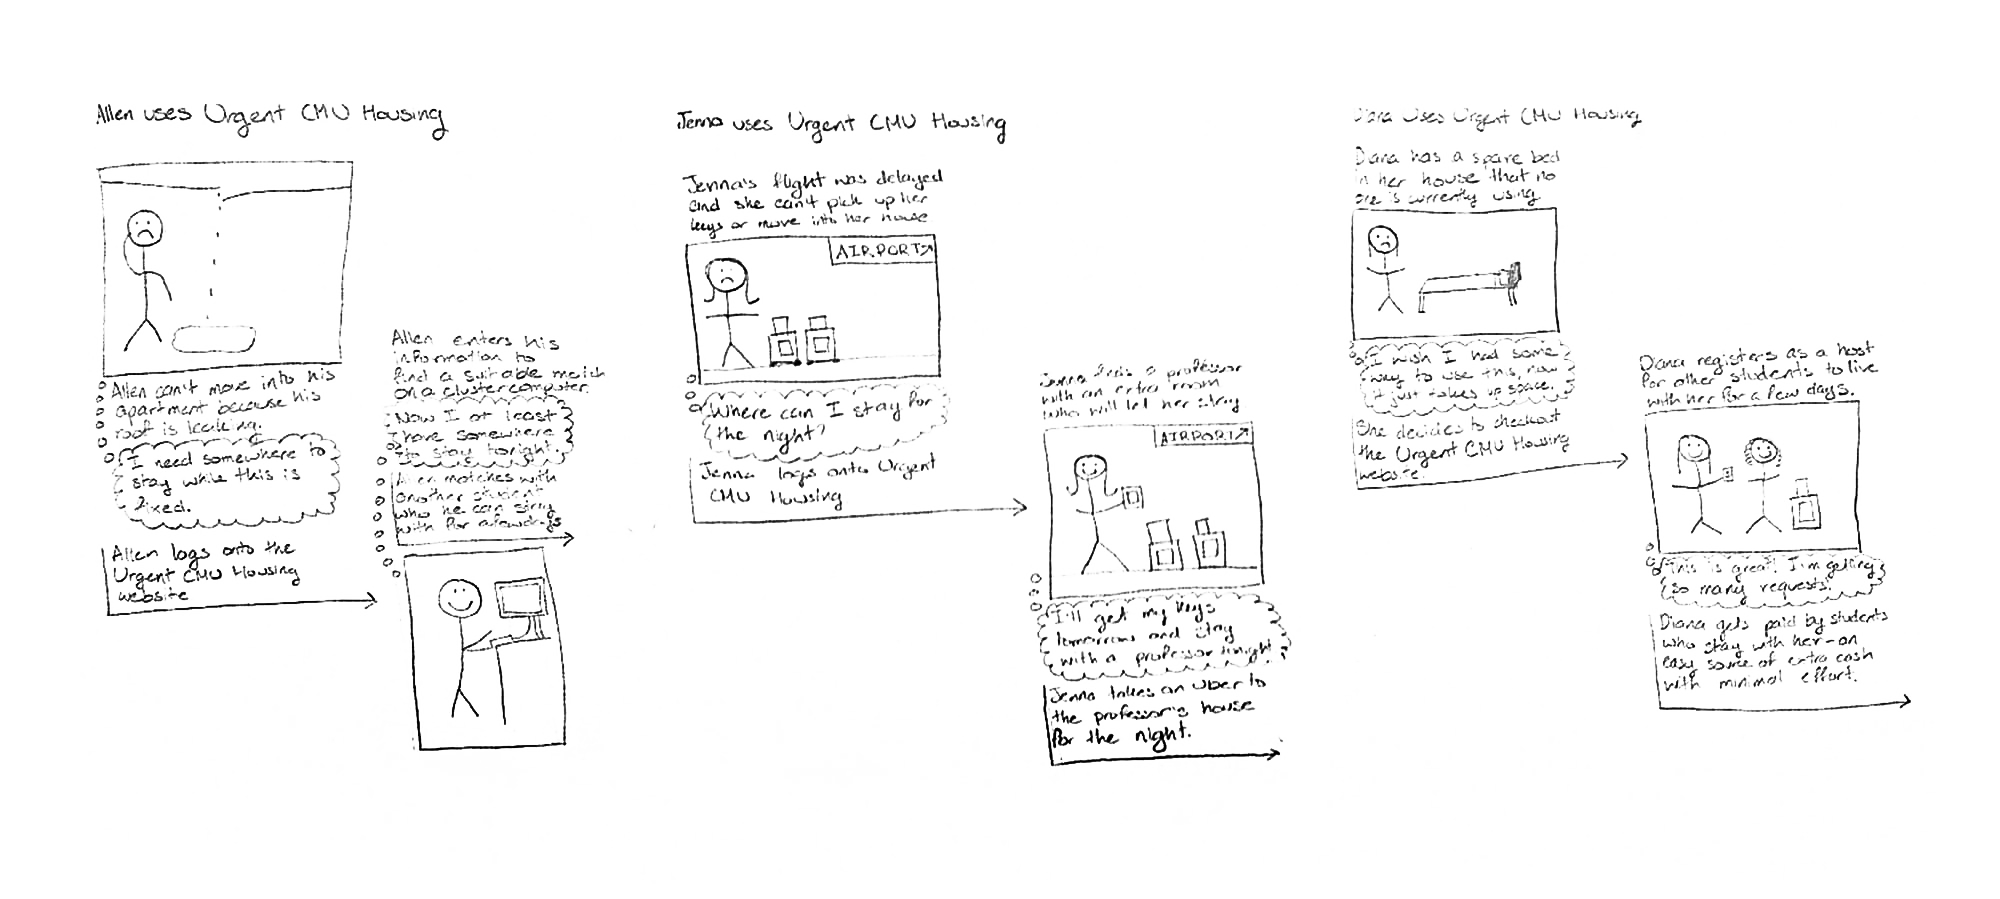 Allen uses Urgent CMU Housing
Allen can't move into his
apartment because his
roof is leaking.
I need somewhere to
stay while this is
fixed.
Allen logs onto the
Urgent CMU Housing
website
Allen enters his
information to
find a suitable match
on a cluster computer
Now I at least
have somewhere
to stay tonight.
Allen matches with
another student
who he can stay
with for a few days
Jenna uses Urgent CMU Housing
Jenna's flight was delayed
and she can't pick up her
keys or move into her house
AIRPORT↗
Where can I stay for
the night?
Jenna logs onto Urgent
CMU Housing
Jenna finds a professor
with an extra room
who will let her stay
AIRPORT↗
I'll get my keys
tomorrow and stay
with a professor tonight
Jenna takes an Uber to
the professor's house
for the night.
Diana uses Urgent CMU Housing
Diana has a spare bed
in her house that no
one is currently using
I wish I had some
way to use this, now
it just takes up space.
She decides to checkout
the Urgent CMU Housing
website.
Diana registers as a host
for other students to live
with her for a few days.
This is great! I'm getting
so many requests!
Diana gets paid by students
who stay with her - an
easy source of extra cash
with minimal effort.